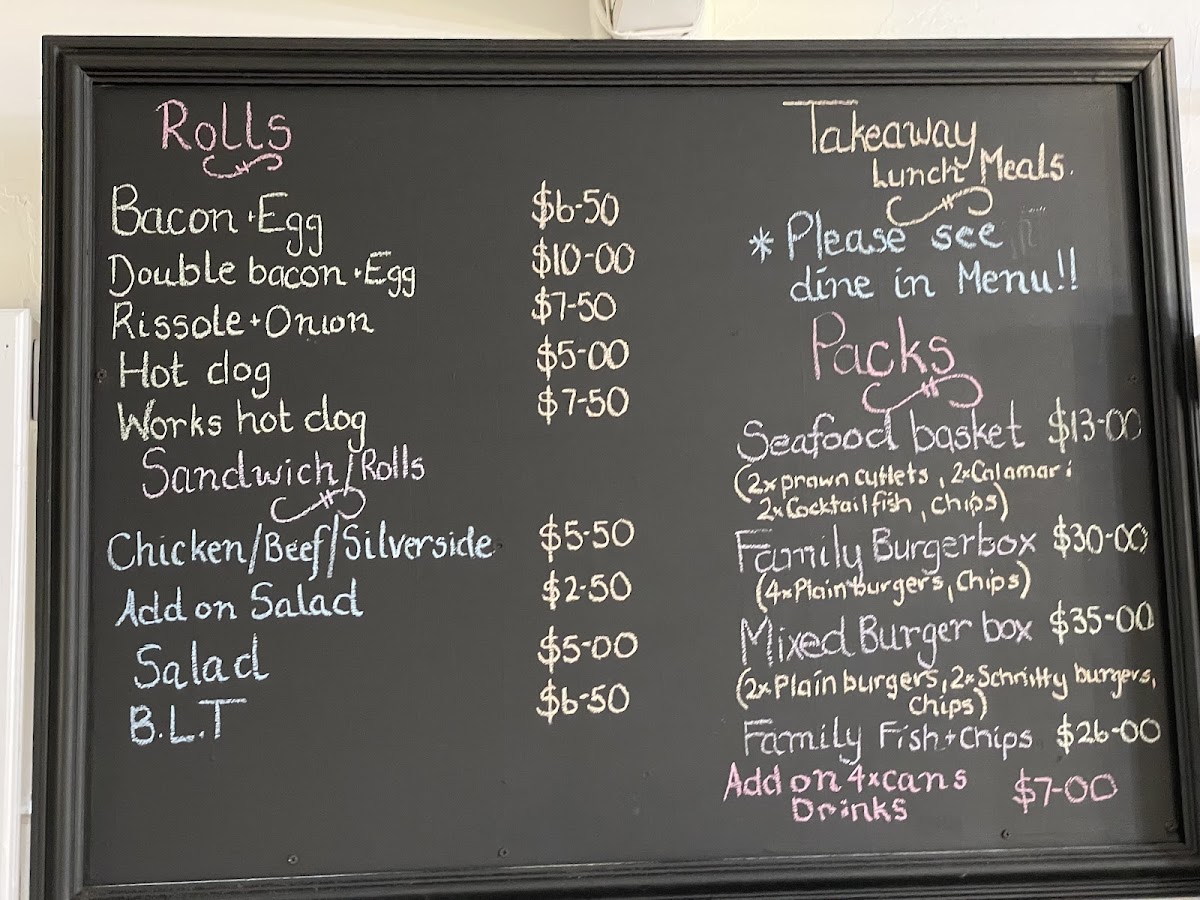 Rolls
Bacon + Egg $6-50
Double bacon + Egg $10-00
Rissole + Onion $7-50
Hot dog $5-00
Works hot dog $7-50
Sandwich/Rolls
Chicken/Beef/Silverside $5-50
Add on Salad $2-50
Salad $5-00
B.L.T $6-50
Takeaway
Lunch Meals.
* Please see
dine in Menu!!
Packs
Seafood basket $13-00
(2x prawn cutlets, 2x Calamari
2x Cocktail fish, chips)
Family Burger box $30-00
(4x Plain burgers, Chips)
Mixed Burger box $35-00
(2x Plain burgers, 2x Schnitty burgers,
chips)
Family Fish + Chips $26-00
Add on 4x cans $7-00
Drinks